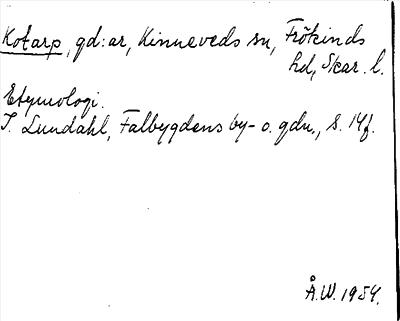 Kotarp, gd:ar, Kinneveds sn, Frökinds
hd, Skar. l.
Etymologi.
I. Lundahl, Falbygdens by- o. gdn., s. 14f.
Å.W. 1954.